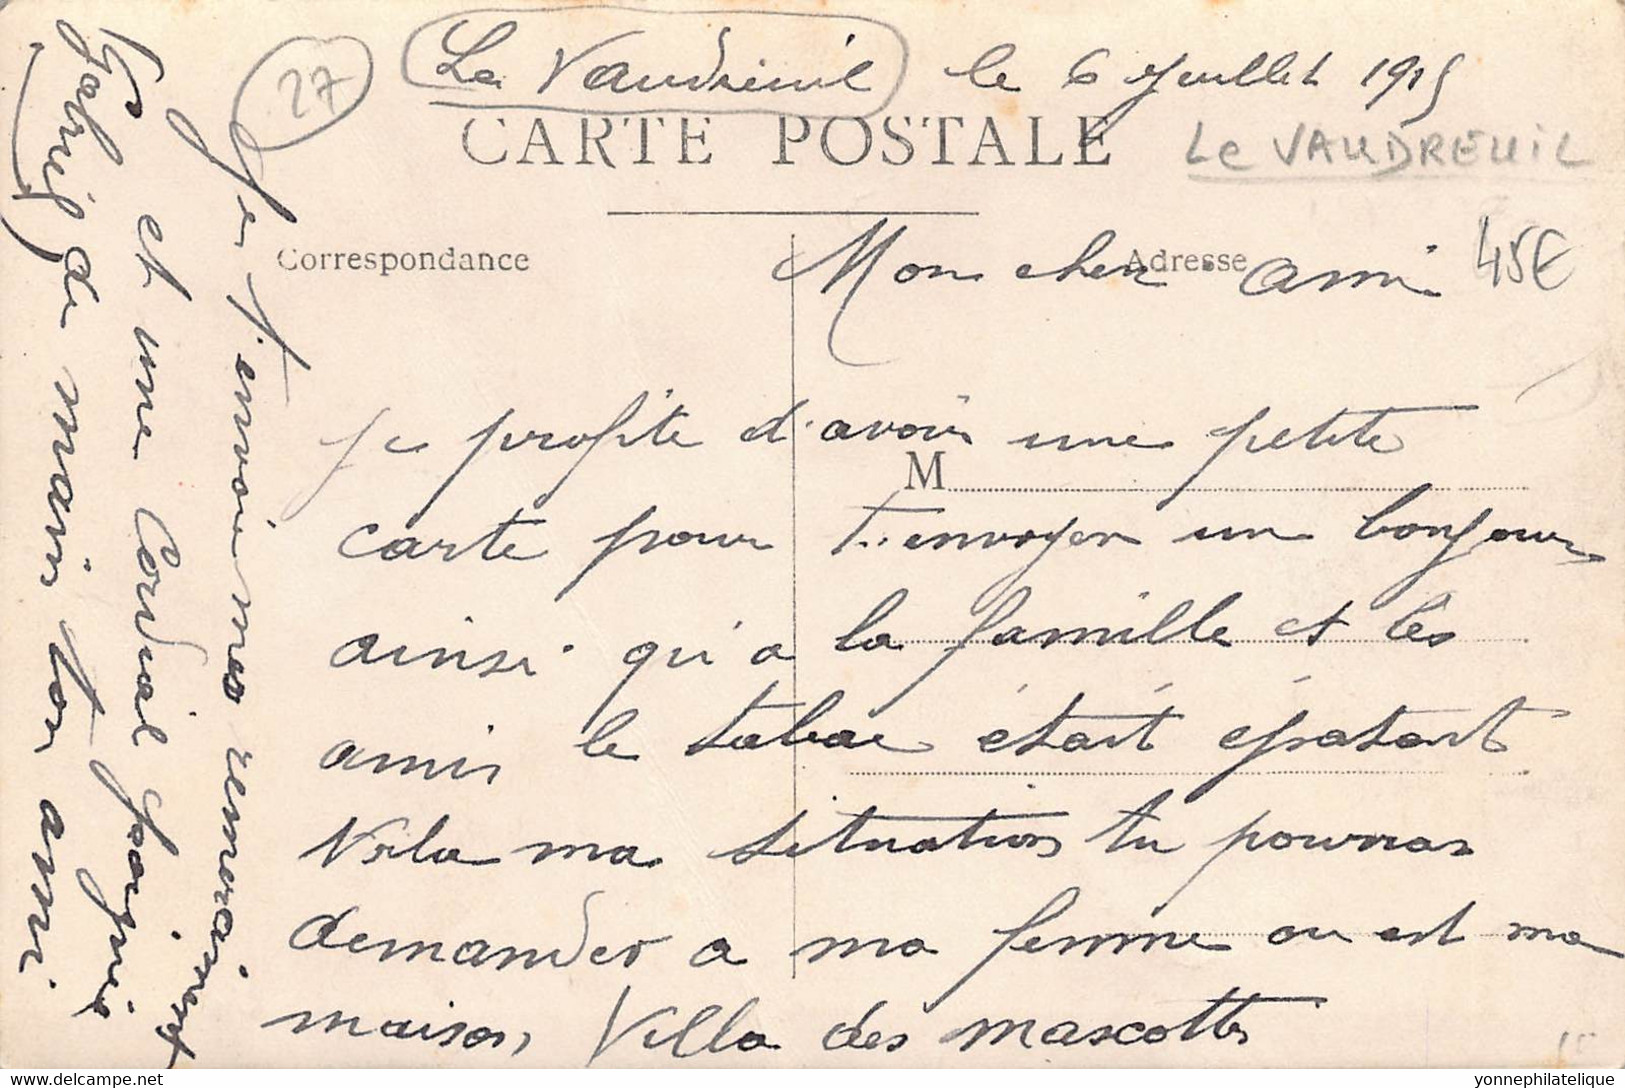 27
Le Vaudreuil le 6 Juillet 1915
CARTE POSTALE
Le VAUDREUIL
Correspondance
Adresse
45€
Mon cher ami
je profite d'avoir une petite
M
carte pour t'envoyer un bonjour
ainsi qu'a la famille et les
amis le tabac était épatant
Voila ma situation tu pourras
demander a ma femme ou est ma
maison, Villa des mascottes
Je t'envoie mes remerciement
et une Cordial poignée
de main ton ami
Gabriel
yonnephilatelique